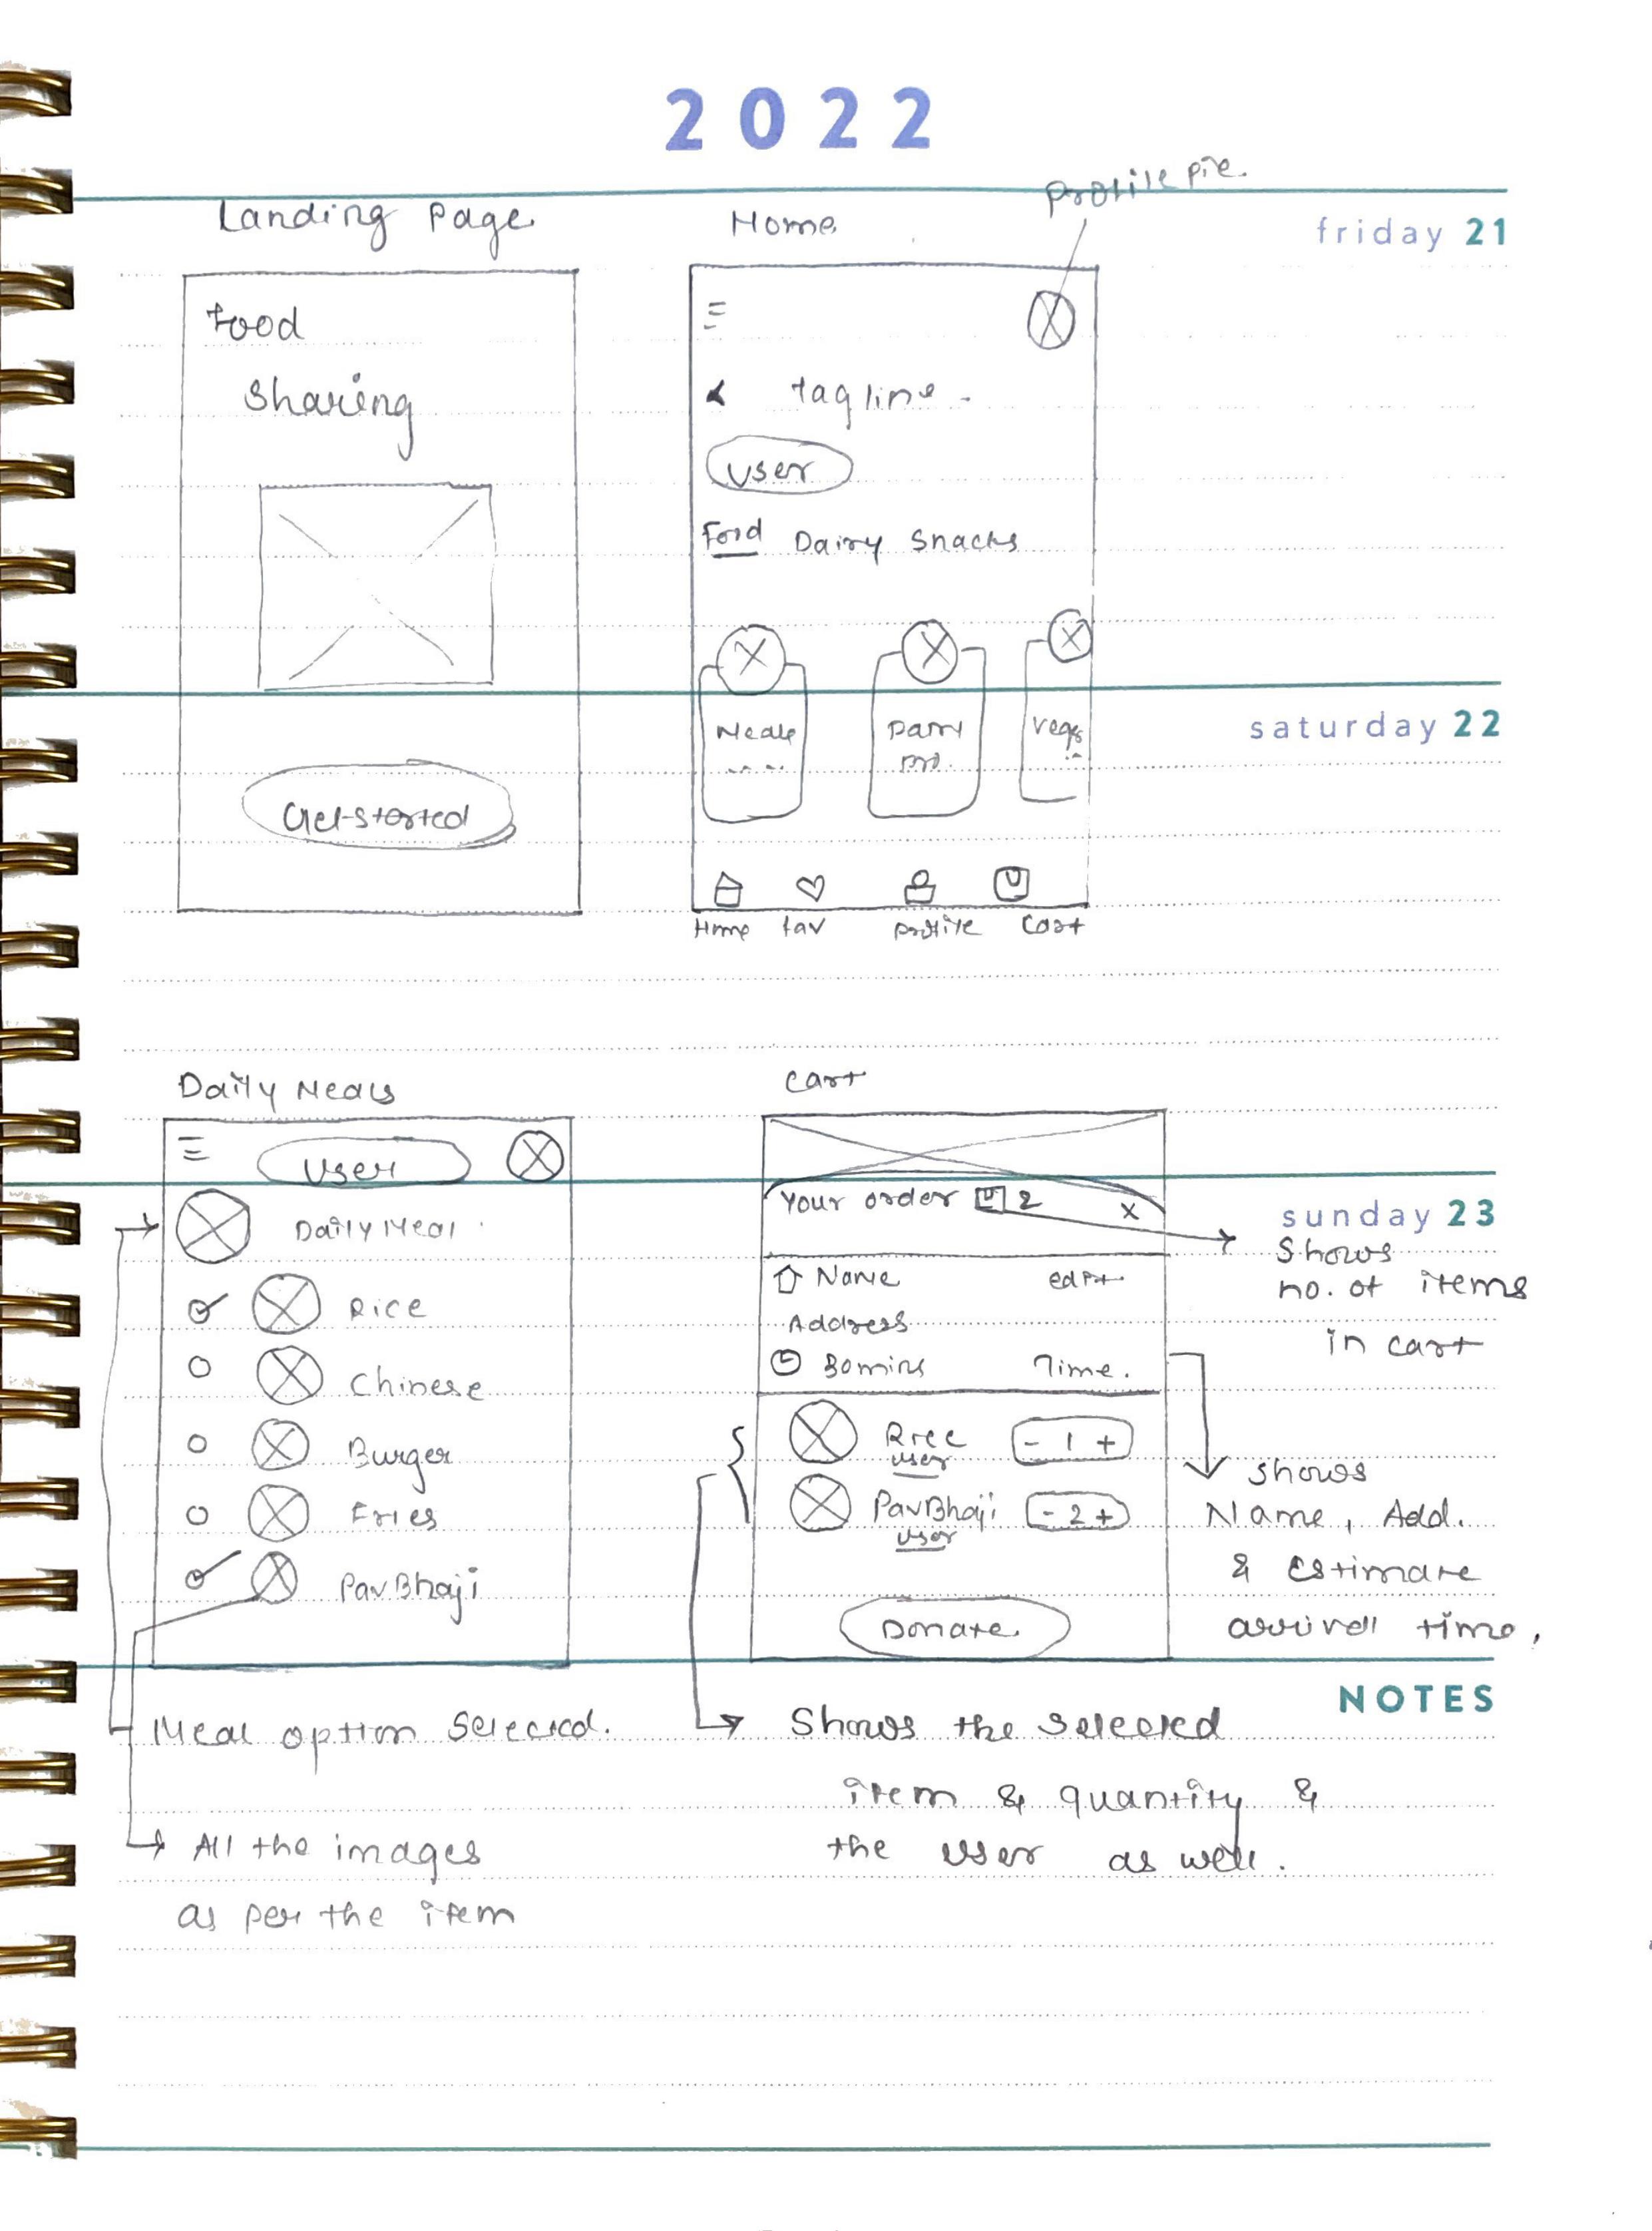 2022
profile pic.
Landing Page
Home
friday 21
Food
Sharing
tagline
User
Food Dairy Snacks
Meals
Veggs
saturday 22
Get started
Home fav profile Cart
Daily Meals
Cart
User
Daily Meal
Rice
Chinese
Burger
Fries
PavBhaji
Your order 2 x
sunday 23
Shows
no. of items
in cart
Name edit
Address
30mins Time.
Rice - 1 +
user
PavBhaji - 2 +
user
Donate
shows
Name, Add.
& Estimate
arrivell time,
NOTES
Meal option selected.
All the images
as per the item
Shows the selected
item & quantity &
the user as well.